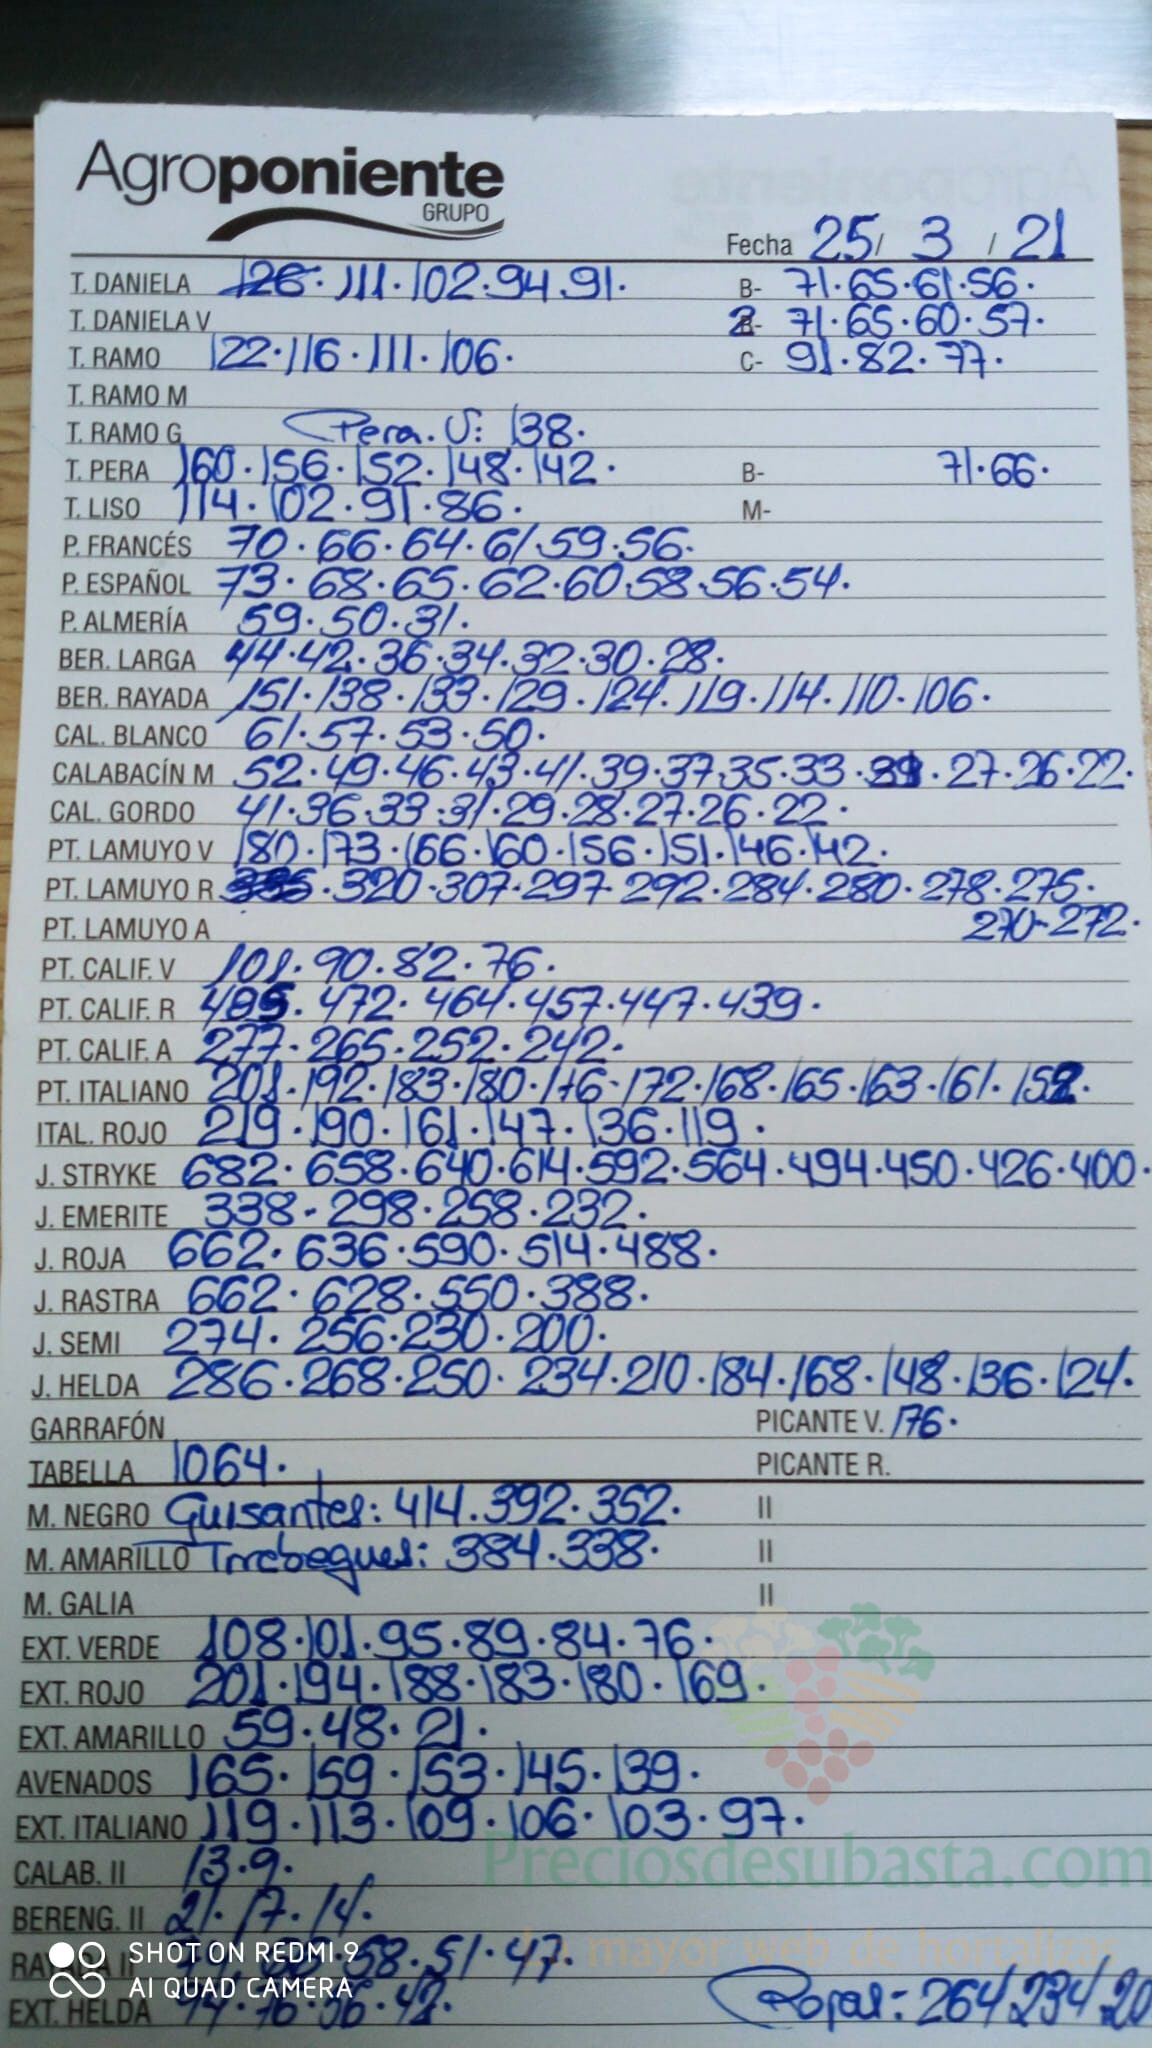 Agroponiente
GRUPO
Fecha 25/ 3 / 21
T. DANIELA 126. 111. 102. 94. 91. B- 71. 65. 61. 56.
T. DANIELA V 2- 71. 65. 60. 57.
T. RAMO 122. 116. 111. 106. C- 91. 82. 77.
T. RAMO M
T. RAMO G Pera. V: 138.
T. PERA 160. 156. 152. 148. 142. B- 71. 66.
T. LISO 114. 102. 91. 86. M-
P. FRANCÉS 70. 66. 64. 61. 59. 56.
P. ESPAÑOL 73. 68. 65. 62. 60. 58. 56. 54.
P. ALMERÍA 59. 50. 31.
BER. LARGA 44. 42. 36. 34. 32. 30. 28.
BER. RAYADA 151. 138. 133. 129. 124. 119. 114. 110. 106.
CAL. BLANCO 61. 57. 53. 50.
CALABACÍN M 52. 49. 46. 43. 41. 39. 37. 35. 33. 27. 26. 22.
CAL. GORDO 41. 36. 33. 31. 29. 28. 27. 26. 22.
PT. LAMUYO V 180. 173. 166. 160. 156. 151. 146. 142.
PT. LAMUYO R 320. 307. 297. 292. 284. 280. 278. 275.
PT. LAMUYO A 270. 272.
PT. CALIF. V 101. 90. 82. 76.
PT. CALIF. R 485. 472. 464. 457. 447. 439.
PT. CALIF. A 277. 265. 252. 242.
PT. ITALIANO 201. 192. 183. 180. 176. 172. 168. 165. 163. 161. 152.
ITAL. ROJO 219. 190. 161. 147. 136. 119.
J. STRYKE 682. 658. 640. 614. 592. 564. 494. 450. 426. 400.
J. EMERITE 338. 298. 258. 232.
J. ROJA 662. 636. 590. 514. 488.
J. RASTRA 662. 628. 550. 388.
J. SEMI 274. 256. 230. 200.
J. HELDA 286. 268. 250. 234. 210. 184. 168. 148. 136. 124.
GARRAFÓN PICANTE V. 176.
TABELLA 1064. PICANTE R.
M. NEGRO Guisantes: 414. 392. 352. II
M. AMARILLO Tirabeques: 384. 338. II
M. GALIA II
EXT. VERDE 108. 101. 95. 89. 84. 76.
EXT. ROJO 201. 194. 188. 183. 180. 169.
EXT. AMARILLO 59. 48. 21.
AVENADOS 165. 159. 153. 145. 139.
EXT. ITALIANO 119. 113. 109. 106. 103. 97.
Preciosdesubasta.com
CALAB. II 13. 9.
BERENG. II 21. 17. 14.
La mayor web de hortalizas
SHOT ON REDMI 9
58. 51. 47.
AI QUAD CAMERA
EXT. HELDA 42. Rojas: 264. 234. 20